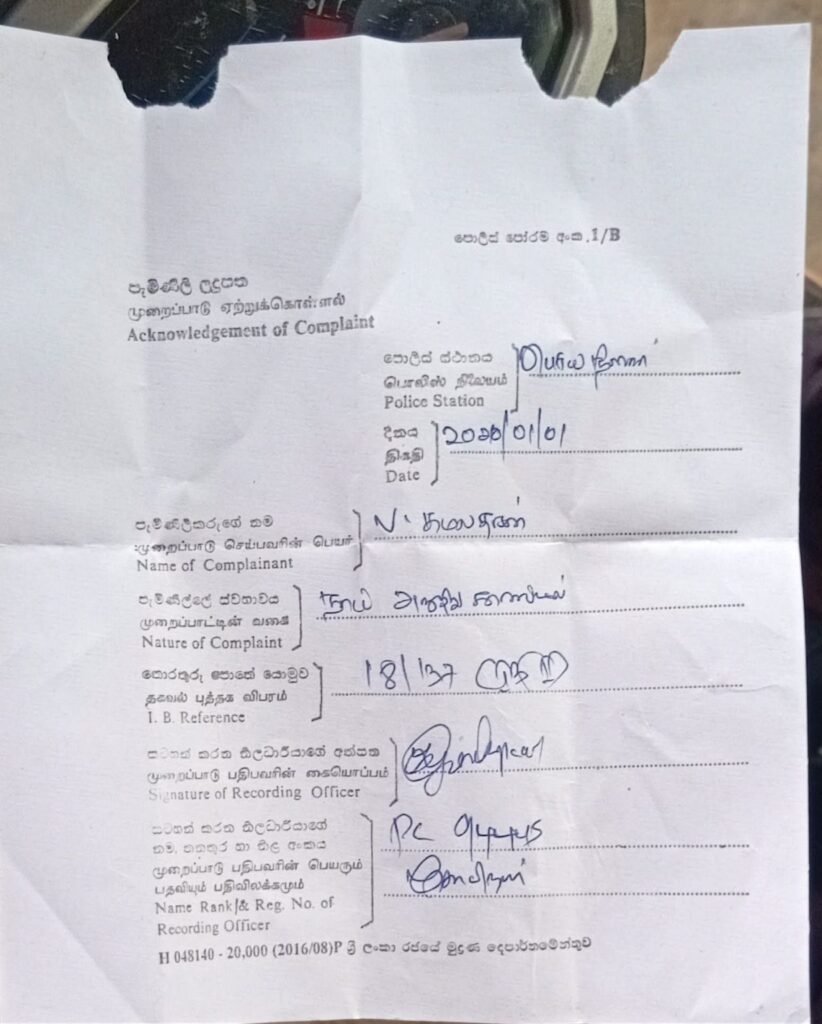 පොලිස් පෝරම අංක .1/B
පැමිණිලි ලදුපත
முறைப்பாடு ஏற்றுக்கொள்ளல்
Acknowledgement of Complaint
පොලිස් ස්ථානය
பொலிஸ் நிலையம்
Police Station
දිනය
திகதி
Date
/01/01
පැමිණිලිකරුගේ නම
முறைப்பாடு செய்பவரின் பெயர்
Name of Complainant
N.
පැමිණිල්ලේ ස්වභාවය
முறைப்பாட்டின் வகை
Nature of Complaint
තොරතුරු පොතේ යොමුව
தகவல் புத்தக விபரம்
I. B. Reference
18/137
සටහන් කරන නිලධාරියාගේ අත්සන
முறைப்பாடு பதிபவரின் கையொப்பம்
Signature of Recording Officer
සටහන් කරන නිලධාරියාගේ
නම, තනතුර හා නිල අංකය
முறைப்பாடு பதிபவரின் பெயரும்
பதவியும் பதிவிலக்கமும்
Name Rank & Reg. No. of
Recording Officer
PC
H 048140 - 20,000 (2016/08)P ශ්‍රී ලංකා රජයේ මුද්‍රණ දෙපාර්තමේන්තුව